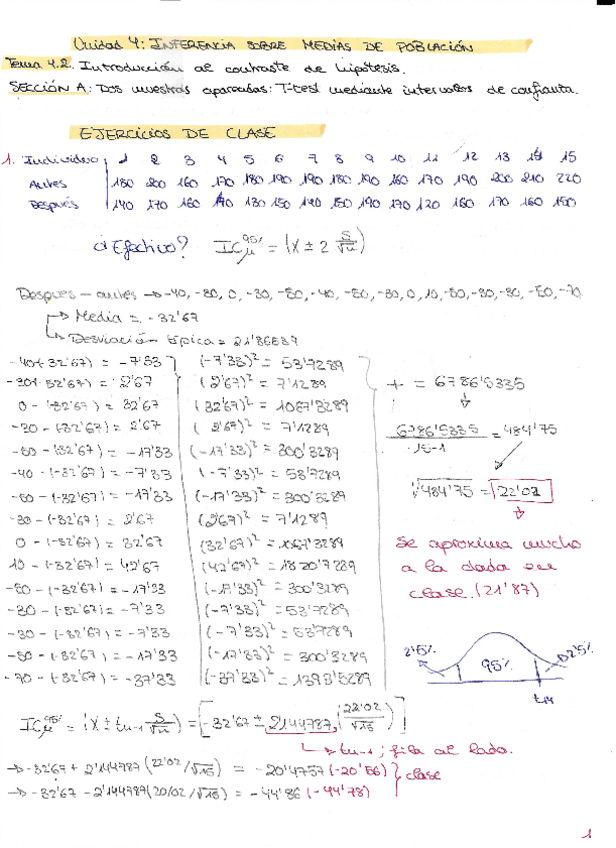 Unidad 4: INFERENCIA SOBRE MEDIAS DE POBLACIÓN
Tema 4.2. Introducción al contraste de hipótesis.
SECCIÓN A: Dos muestras apareadas: T-test mediante intervalos de confianza.
EJERCICIOS DE CLASE
1. Individuo 1 2 3 4 5 6 7 8 9 10 11 12 13 14 15
Antes 180 200 160 170 180 190 190 180 190 160 170 190 200 210 220
Después 140 170 160 140 130 150 140 150 190 170 120 160 170 160 150
¿Efectivo? IC μ 95% = (X ± 2 S/√n)
Despues - antes → -40, -30, 0, -30, -50, -40, -50, -30, 0, 10, -50, -30, -30, -50, -70
→ Media = -32'67
→ Desviación típica = 21'86689
-40-(-32'67) = -7'33 (-7'33)² = 53'7289
-30-(-32'67) = 2'67 (2'67)² = 7'1289 + = 6786'5335
0 - (-32'67) = 32'67 (32'67)² = 1067'3289
-30 - (-32'67) = 2'67 (2'67)² = 7'1289 6786'5335 / 15-1 = 484'75
-50 - (-32'67) = -17'33 (-17'33)² = 300'3289
-40 - (-32'67) = -7'33 (-7'33)² = 53'7289
-50 - (-32'67) = -17'33 (-17'33)² = 300'3289 √484'75 = 22'02
-30 - (-32'67) = 2'67 (2'67)² = 7'1289
0 - (-32'67) = 32'67 (32'67)² = 1067'3289 Se aproxima mucho
10 - (-32'67) = 42'67 (42'67)² = 1820'7289 a la dada en
-50 - (-32'67) = -17'33 (-17'33)² = 300'3289 clase. (21'87)
-30 - (-32'67) = -7'33 (-7'33)² = 53'7289
-30 - (-32'67) = -7'33 (-7'33)² = 53'7289
-50 - (-32'67) = -17'33 (-17'33)² = 300'3289 2'5% 95% 2'5%
-70 - (-32'67) = -37'33 (-37'33)² = 1393'5289
t14
IC μ 95% = (X ± tn-1 S/√n) = [-32'67 ± 2'144787 (22'02/√15)]
→ tn-1; fila al lado.
→ -32'67 + 2'144787 (22'02/√15) = -20'4757 (-20'56)
clase
→ -32'67 - 2'144787 (20'02/√15) = -44'86 (-44'78)
1